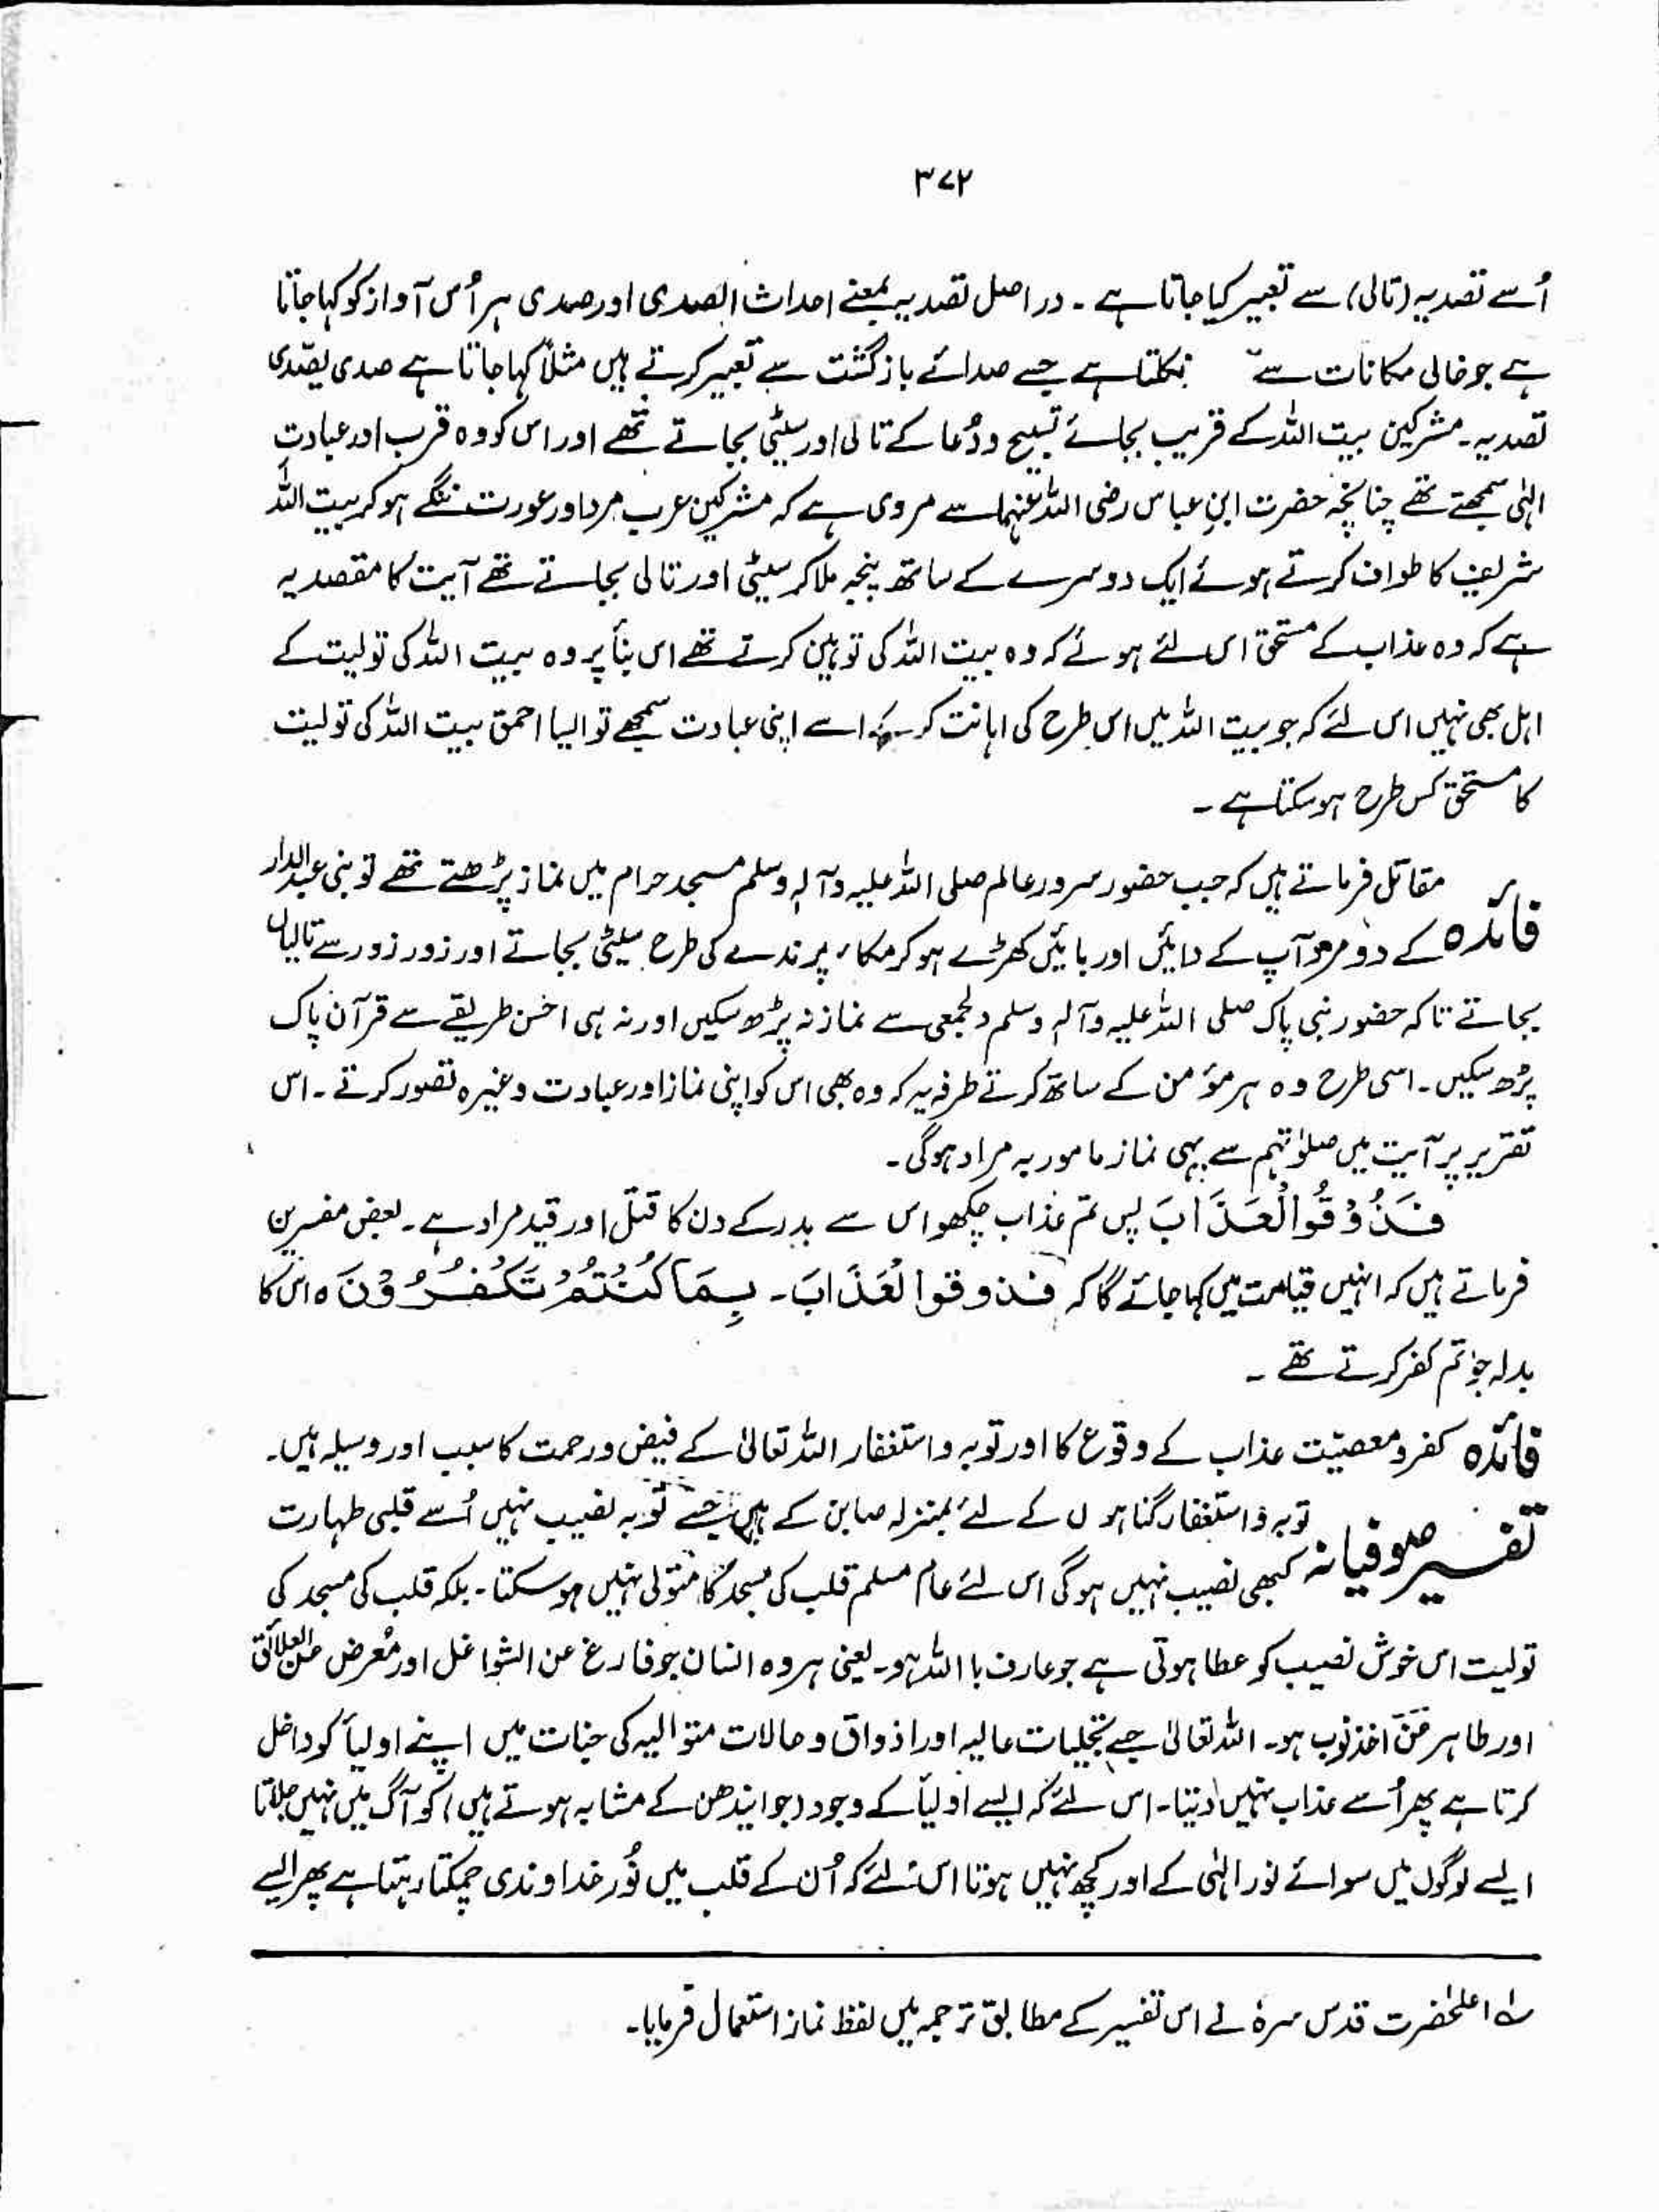 ۳۷۲
اُسے تصدیہ (تالی) سے تعبیر کیا جاتا ہے ۔ در اصل تصدیہ بمعنے احداث الصدی اور صدی ہر اُس آواز کو کہا جاتا
ہے جو خالی مکانات سے نکلتا ہے جسے صدائے بازگشت سے تعبیر کرتے ہیں مثلاً کہا جاتا ہے صدی یصّدی
تصدیہ ۔ مشرکین بیت اللہ کے قریب بجائے تسبیح و دُعا کے تالی اور سیٹی بجاتے تھے اور اس کو وہ قرب اور عبادتِ
الہٰی سمجھتے تھے چنانچہ حضرت ابنِ عباس رضی اللہ عنہما سے مروی ہے کہ مشرکین عرب مرد اور عورت ننگے ہو کر بیت اللہ
شریف کا طواف کرتے ہوئے ایک دوسرے کے ساتھ پنجہ ملا کر سیٹی اور تالی بجاتے تھے آیت کا مقصد یہ
ہے کہ وہ عذاب کے مستحق اس لئے ہوئے کہ وہ بیت اللہ کی توہین کرتے تھے اس بنأ پر وہ بیت اللہ کی تولیت کے
اہل بھی نہیں اس لئے کہ جو بیت اللہ میں اس طرح کی اہانت کر کے اسے اپنی عبادت سمجھے تو ایسا احمق بیت اللہ کی تولیت
کا مستحق کس طرح ہو سکتا ہے ۔
مقاتل فرماتے ہیں کہ جب حضور سرور عالم صلی اللہ علیہ وآلہٖ وسلم مسجد حرام میں نماز پڑھتے تھے تو بنی عبدالدار
فائدہ کے دو مرد آپ کے دائیں اور بائیں کھڑے ہو کر مکاء پرندے کی طرح سیٹی بجاتے اور زور زور سے تالیاں
بجاتے تاکہ حضور نبی پاک صلی اللہ علیہ وآلہٖ وسلم دلجمعی سے نماز نہ پڑھ سکیں اور نہ ہی احسن طریقے سے قرآن پاک
پڑھ سکیں ۔ اسی طرح وہ ہر مؤمن کے ساتھ کرتے طرفہ یہ کہ وہ بھی اس کو اپنی نماز اور عبادت وغیرہ تصور کرتے ۔ اس
تقریر پر آیت میں صلوٰتہم سے یہی نماز مامور بہ مراد ہوگی ۔
فَذُوْقُوا الْعَذَابَ پس تم عذاب چکھو اس سے بدر کے دن کا قتل اور قید مراد ہے ۔ بعض مفسرین
فرماتے ہیں کہ انہیں قیامت میں کہا جائے گا کہ فذوقوا لْعَذَابَ ۔ بِمَا كُنْتُمْ تَكْفُرُوْنَ ہ اس کا
بدلہ جو تم کفر کرتے تھے ۔
فائدہ کفر و معصیّت عذاب کے وقوع کا اور توبہ و استغفار اللہ تعالیٰ کے فیض و رحمت کا سبب اور وسیلہ ہیں ۔
توبہ و استغفار گناہوں کے لئے بمنزلہ صابن کے ہیں جسے توبہ نصیب نہیں اُسے قلبی طہارت
تفسیر صوفیانہ کبھی نصیب نہیں ہوگی اس لئے عام مسلم قلب کی مسجد کا متولی نہیں ہو سکتا ۔ بلکہ قلب کی مسجد کی
تولیت اس خوش نصیب کو عطا ہوتی ہے جو عارف با اللہ ہو ۔ یعنی ہر وہ انسان جو فارغ عن الشواغل اور مُعرض عن العلائق
اور طاہر ہو ۔ اللہ تعالیٰ جسے تجلیات عالیہ اور اذواق و حالات متوالیہ کی جنات میں اپنے اولیأ کو داخل
کرتا ہے پھر اُسے عذاب نہیں دیتا ۔ اس لئے کہ ایسے اولیأ کے وجود (جو ایندھن کے مشابہ ہوتے ہیں) کو آگ میں نہیں جلاتا
ایسے لوگوں میں سوائے نور الہٰی کے اور کچھ نہیں ہوتا اس لئے کہ اُن کے قلب میں نُور خداوندی چمکتا رہتا ہے پھر ایسے
لہ اعلحٰضرت قدس سرہٗ نے اس تفسیر کے مطابق ترجمہ میں لفظ نماز استعمال فرمایا ۔